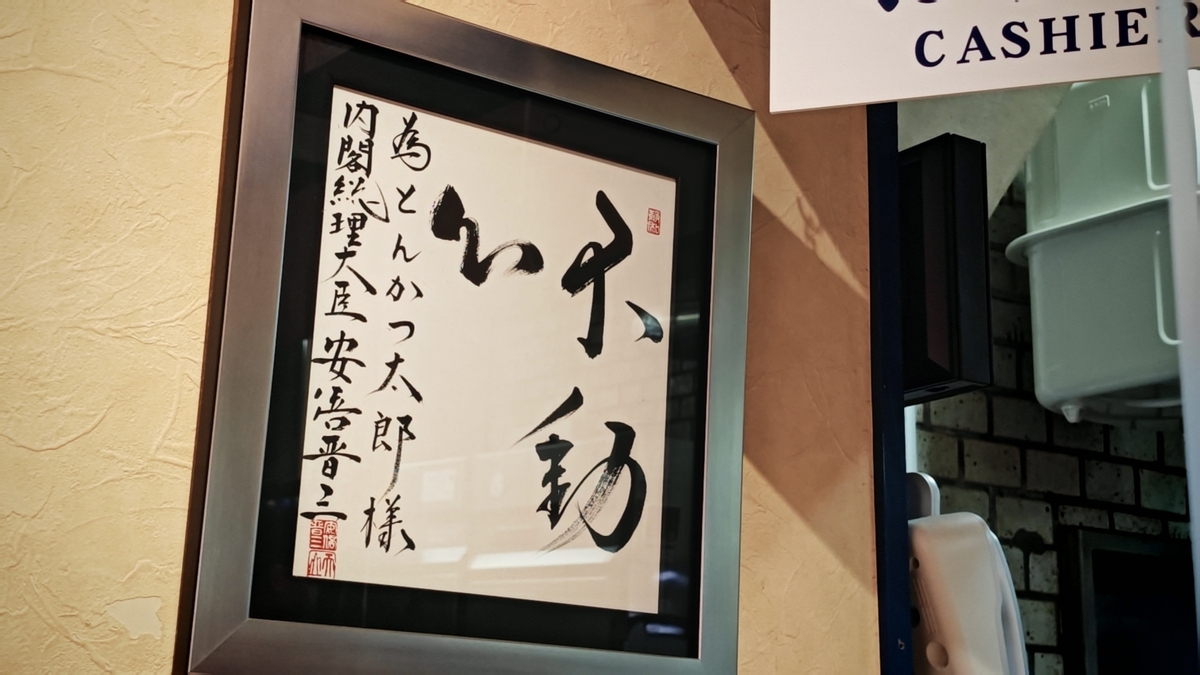 不動
心
為とんかつ太郎様
内閣総理大臣安倍晋三
CASHIER